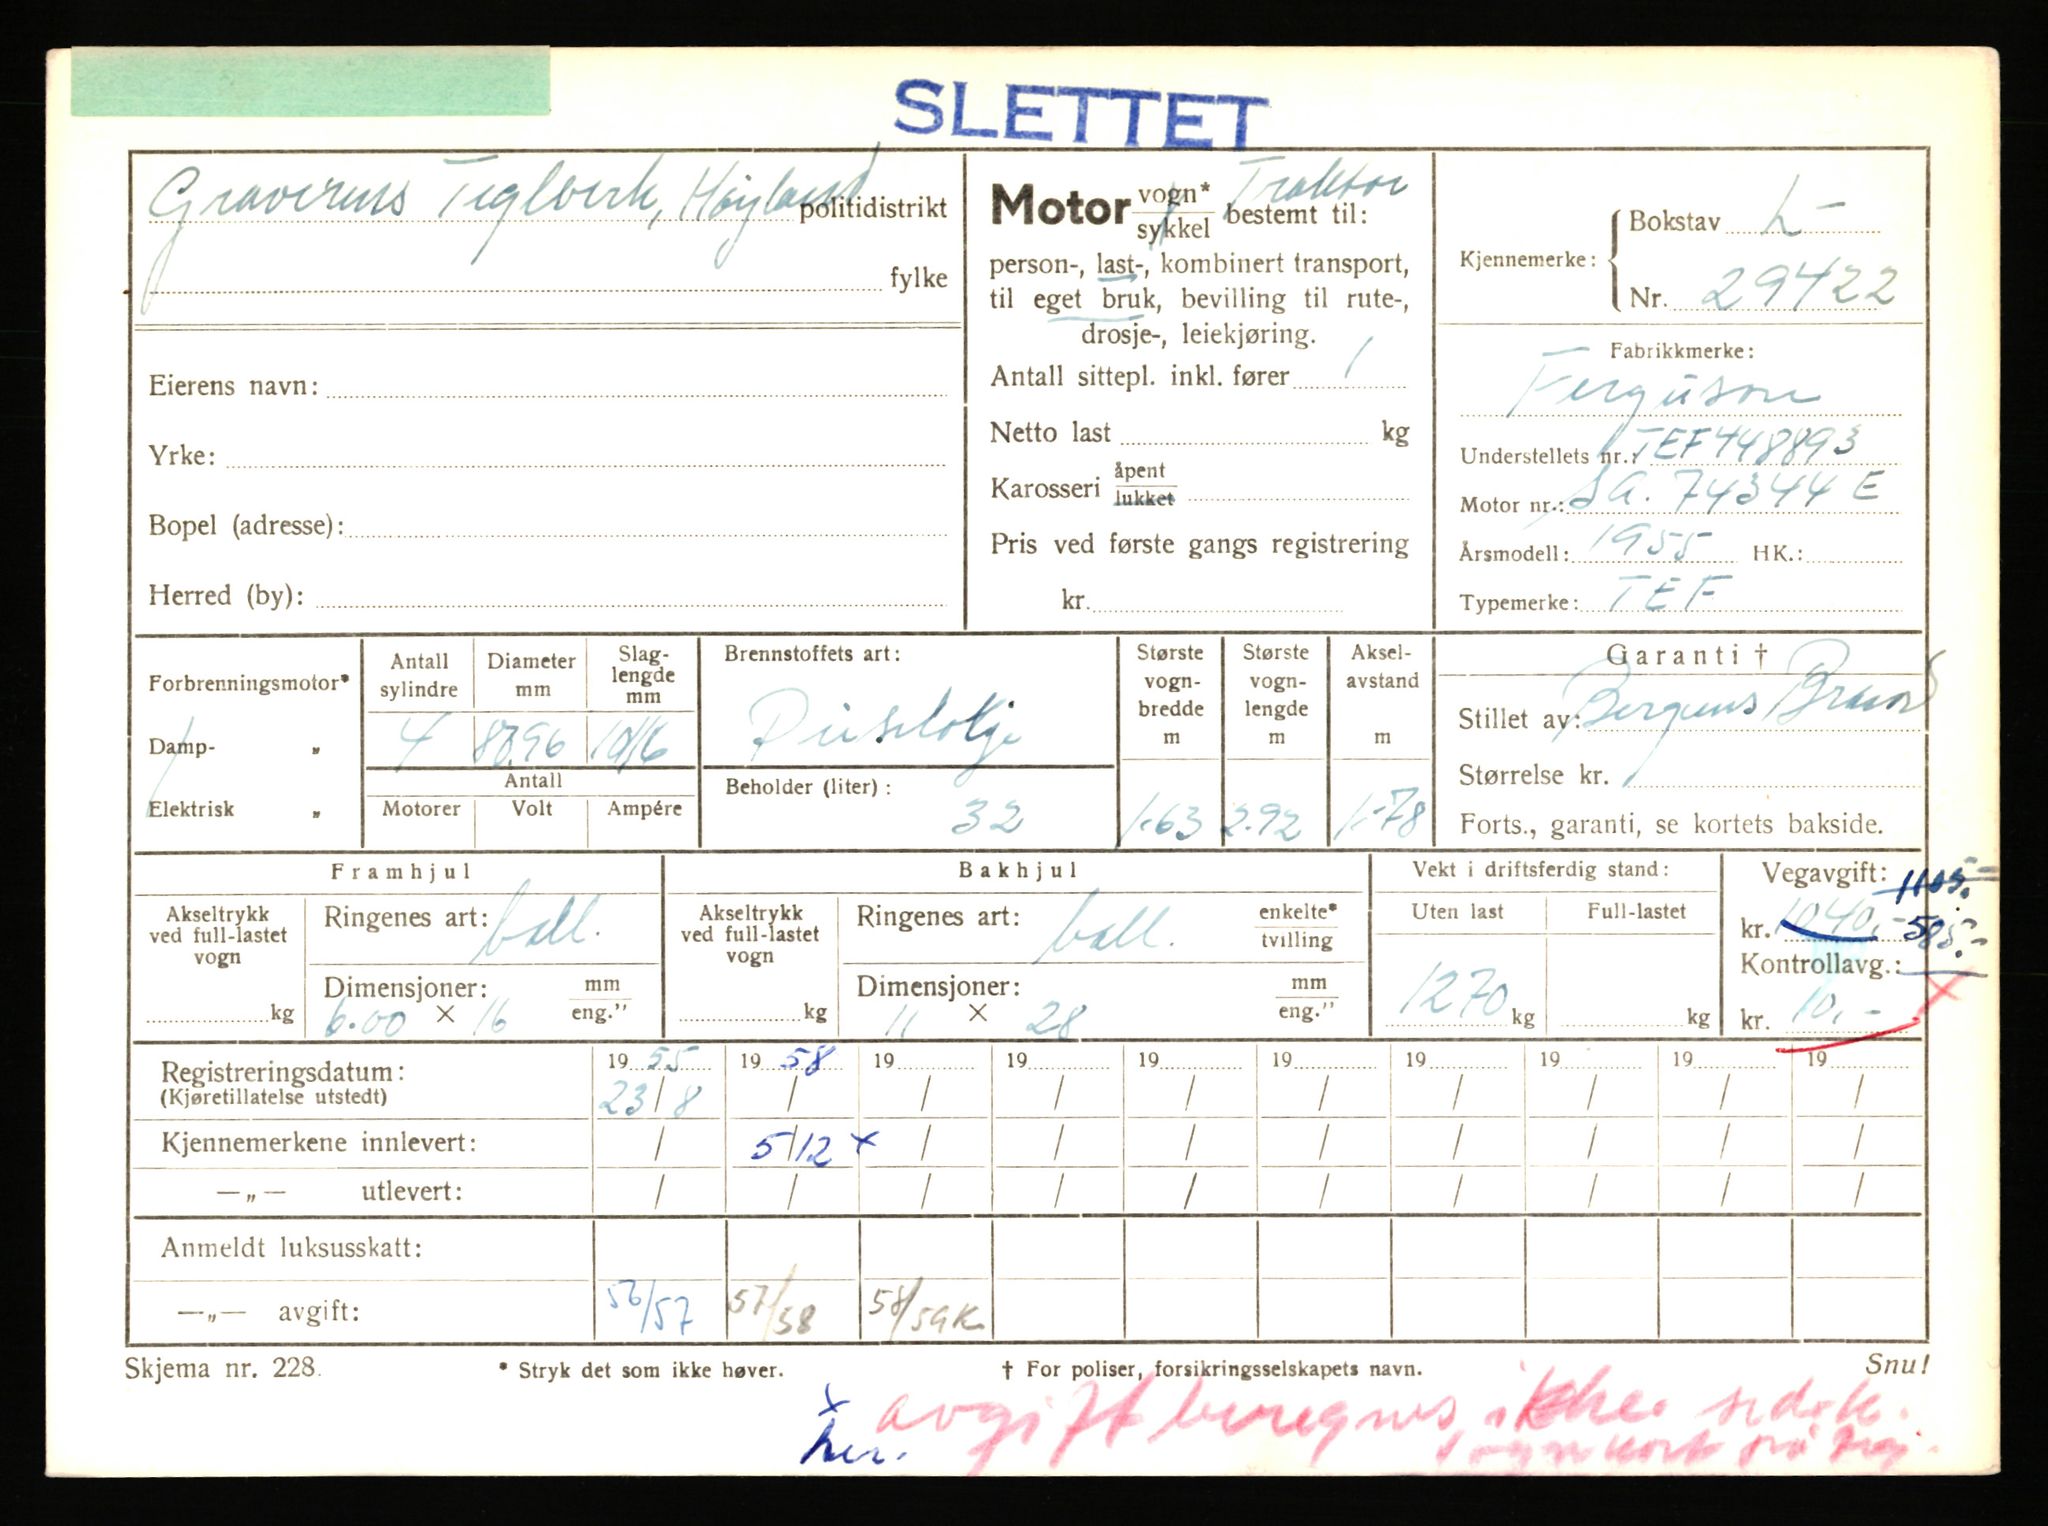 SLETTET
Graverens Teglverk, Høyland politidistrikt
fylke
Eierens navn:
Yrke:
Bopel (adresse):
Herred (by):
Traktor
Motor vogn* / sykkel bestemt til:
person-, last-, kombinert transport,
til eget bruk, bevilling til rute-,
drosje-, leiekjøring.
Antall sittepl. inkl. fører 1
Netto last kg
Karosseri åpent / lukket
Pris ved første gangs registrering
kr.
Kjennemerke: Bokstav L-
Nr. 29422
Fabrikkmerke:
Ferguson
Understellets nr.: TEF 448893
Motor nr.: SA. 74344 E
Årsmodell: 1955 HK.:
Typemerke: TEF
Forbrenningsmotor*
Damp- „
Elektrisk „
Antall sylindre Diameter mm Slaglengde mm
4 87.96 10116
Antall
Motorer Volt Ampére
Brennstoffets art:
Dieselolje
Beholder (liter):
32
Største vogn-bredde m
1.63
Største vogn-lengde m
2.92
Aksel-avstand m
1.78
Garanti †
Stillet av: Bergens Brand
Størrelse kr.
Forts., garanti, se kortets bakside.
Framhjul
Akseltrykk ved full-lastet vogn
kg
Ringenes art: ball.
Dimensjoner: mm / eng."
6.00 × 16
Bakhjul
Akseltrykk ved full-lastet vogn
kg
Ringenes art: ball. enkelte* / tvilling
Dimensjoner: mm / eng."
11 × 28
Vekt i driftsferdig stand:
Uten last Full-lastet
1270 kg kg
Vegavgift: 1105.-
kr. 1040,- 585.-
Kontrollavg.:
kr. 10,-
Registreringsdatum: 19 55 19 58 19 19 19 19 19 19 19 19
(Kjøretillatelse utstedt) 23/8 / / / / / / / / /
Kjennemerkene innlevert: / 5/12 x / / / / / / / /
—„— utlevert: / / / / / / / / / /
Anmeldt luksusskatt:
—„— avgift: 56/57 57/58 58/59 K.
Skjema nr. 228. * Stryk det som ikke høver. † For poliser, forsikringsselskapets navn. Snu!
x avgift beregnes ikke
her.